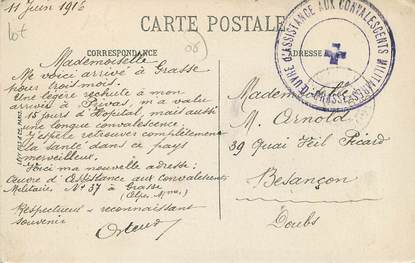 11 Juin 1916
lot
CARTE POSTALE
CORRESPONDANCE
ADRESSE
ŒUVRE d'ASSISTANCE AUX CONVALESCENTS MILITAIRES
GRASSE
Mademoiselle
Me voici arrivé à Grasse
pour trois mois.
Une légère rechute à mon
arrivée à Privas, m'a valu
15 jours d'Hopital, mais aussi
une longue convalescence.
J'espère retrouver complètement
la santé dans ce pays
merveilleux.
Voici ma nouvelle adresse:
Œuvre d'Assistance aux Convalescents
Militaires, N° 37 à Grasse
(Alpes Mmes)
Respectueux et reconnaissant
souvenir
Mademoiselle
M. Arnold
39 Quai Veil Picard
Besançon
Doubs